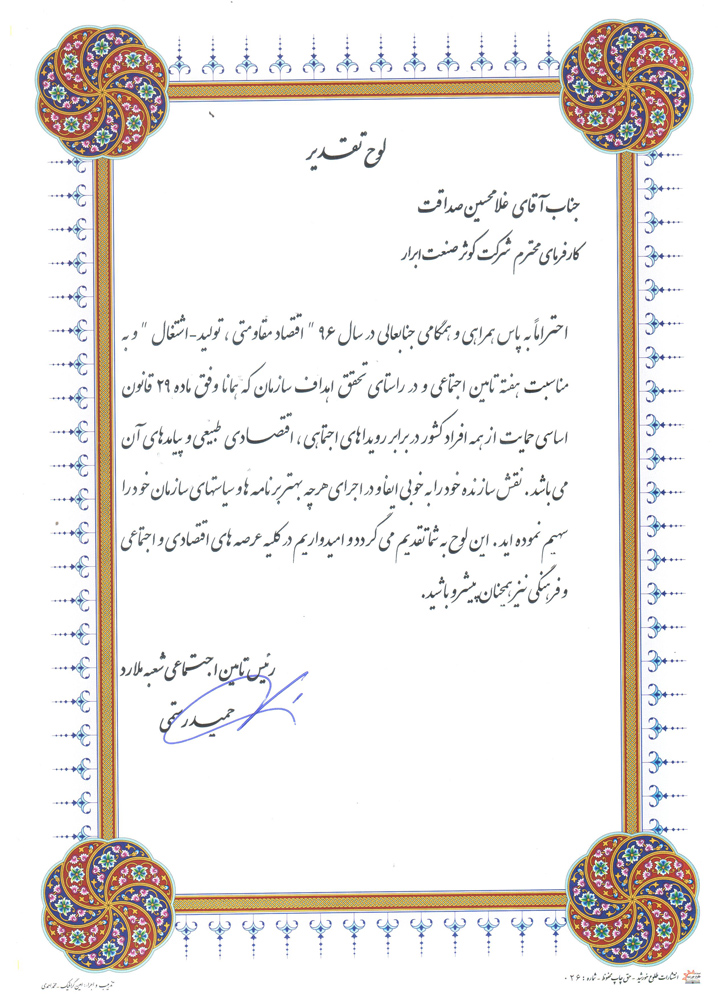 لوح تقدیر
جناب آقای غلامحسین صداقت
کارفرمای محترم شرکت کوثر صنعت ابرار
احتراماً به پاس همراهی و همگامی جنابعالی در سال ۹۶ " اقتصاد مقاومتی ، تولید-اشتغال " و به
مناسبت هفته تامین اجتماعی و در راستای تحقق اهداف سازمان که همانا وفق ماده ۲۹ قانون
اساسی حمایت از همه افراد کشور در برابر رویداهای اجتماعی ، اقتصادی طبیعی و پیامدهای آن
می باشد . نقش سازنده خود را به خوبی ایفا و در اجرای هرچه بهتر برنامه ها و سیاستهای سازمان خود را
سهیم نموده اید . این لوح به شما تقدیم می گردد و امیدواریم در کلیه عرصه های اقتصادی و اجتماعی
و فرهنگی نیز همچنان پیشرو باشید.
رئیس تامین اجتماعی شعبه ملارد
حمید رستمی
انتشارات طلوع خورشید - حق چاپ محفوظ - شماره : ۰۲۶